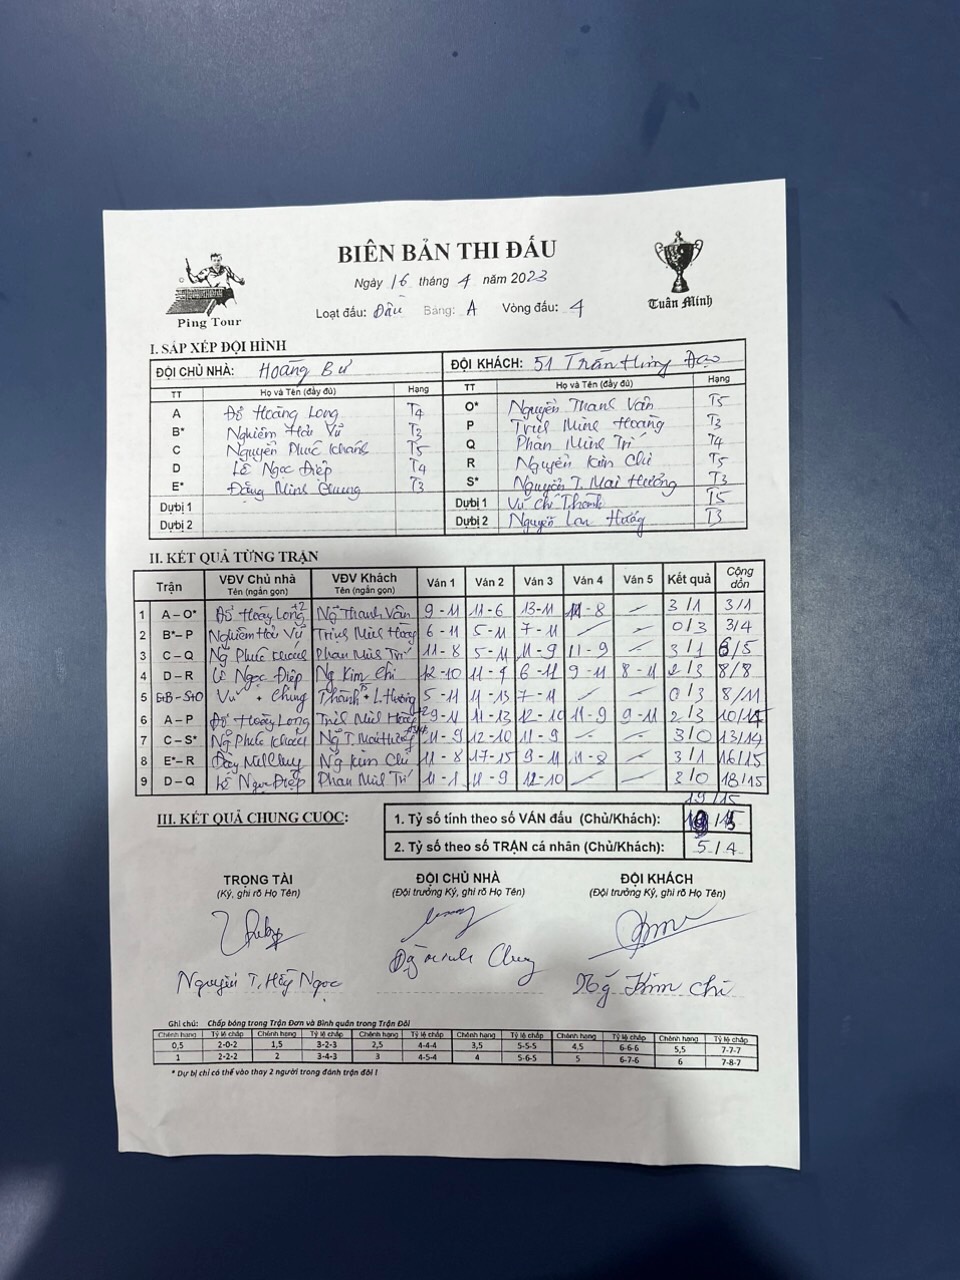 BIÊN BẢN THI ĐẤU
Ngày 16 tháng 4 năm 2023
Loạt đấu: Đầu Bảng: A Vòng đấu: 4
Ping Tour
Tuân Minh
I. SẮP XẾP ĐỘI HÌNH
ĐỘI CHỦ NHÀ: Hoàng Bư ĐỘI KHÁCH: 51 Trần Hưng Đạo
TT Họ và Tên (đầy đủ) Hạng TT Họ và Tên (đầy đủ) Hạng
A Đỗ Hoàng Long T4 O* Nguyễn Thanh Vân T5
B* Nghiêm Hải Vũ T3 P Triệu Minh Hoàng T3
C Nguyễn Phúc Khánh T5 Q Phan Minh Trí T4
D Lê Ngọc Điệp T4 R Nguyễn Kim Chi T5
E* Đặng Minh Chung T3 S* Nguyễn T. Mai Hưởng T3
Dự bị 1 Dự bị 1 Vũ Chí Thành T5
Dự bị 2 Dự bị 2 Nguyễn Lan Hương T3
II. KẾT QUẢ TỪNG TRẬN
Trận VĐV Chủ nhà Tên (ngắn gọn) VĐV Khách Tên (ngắn gọn) Ván 1 Ván 2 Ván 3 Ván 4 Ván 5 Kết quả Cộng dồn
1 A – O* Đỗ Hoàng Long +2 Ng Thanh Vân 9 - 11 11 - 6 13 - 11 11 - 8 – 3 / 1 3/1
2 B* – P Nghiêm Hải Vũ Triệu Minh Hoàng 6 - 11 5 - 11 7 - 11 – – 0 / 3 3/4
3 C – Q Ng Phúc Khánh Phan Minh Trí 11 - 8 5 - 11 11 - 9 11 - 9 – 3 / 1 6/5
4 D – R Lê Ngọc Điệp Ng Kim Chi 12 - 10 11 - 9 6 - 11 9 - 11 8 - 11 2 / 3 8/8
5 E+B – S+O Vũ + Chung Thành + L. Hương 5 - 11 11 - 13 7 - 11 – – 0 / 3 8/11
6 A – P Đỗ Hoàng Long Triệu Minh Hoàng 9 - 11 11 - 13 12 - 10 11 - 9 9 - 11 2 / 3 10/14
7 C – S* Ng Phúc Khánh Ng T. Mai Hưởng 11 - 9 12 - 10 11 - 9 – – 3 / 0 13/14
8 E* – R Ng Kim Chi 11 - 8 17 - 15 9 - 11 11 - 8 – 3 / 1 16/15
9 D – Q Lê Ngọc Điệp Phan Minh Trí 11 - 1 11 - 9 12 - 10 – 3 / 0 18/15
III. KẾT QUẢ CHUNG CUỘC: 19/15
1. Tỷ số tính theo số VÁN đấu (Chủ/Khách):
2. Tỷ số theo số TRẬN cá nhân (Chủ/Khách): 5 / 4
TRỌNG TÀI ĐỘI CHỦ NHÀ ĐỘI KHÁCH
(Ký, ghi rõ Họ Tên) (Đội trưởng Ký, ghi rõ Họ Tên) (Đội trưởng Ký, ghi rõ Họ Tên)
Nguyễn T. Hồng Ngọc Đặng Minh Chung Ng Kim Chi
Ghi chú: Chấp bóng trong Trận Đơn và Bình quân trong Trận Đôi
Chênh hạng Tỷ lệ chấp Chênh hạng Tỷ lệ chấp Chênh hạng Tỷ lệ chấp Chênh hạng Tỷ lệ chấp Chênh hạng Tỷ lệ chấp Chênh hạng Tỷ lệ chấp
0,5 2-0-2 1,5 3-2-3 2,5 4-4-4 3,5 5-5-5 4,5 6-6-6 5,5 7-7-7
1 2-2-2 2 3-4-3 3 4-5-4 4 5-6-5 5 6-7-6 6 7-8-7
* Dự bị chỉ có thể vào thay 2 người trong đánh trận đôi !